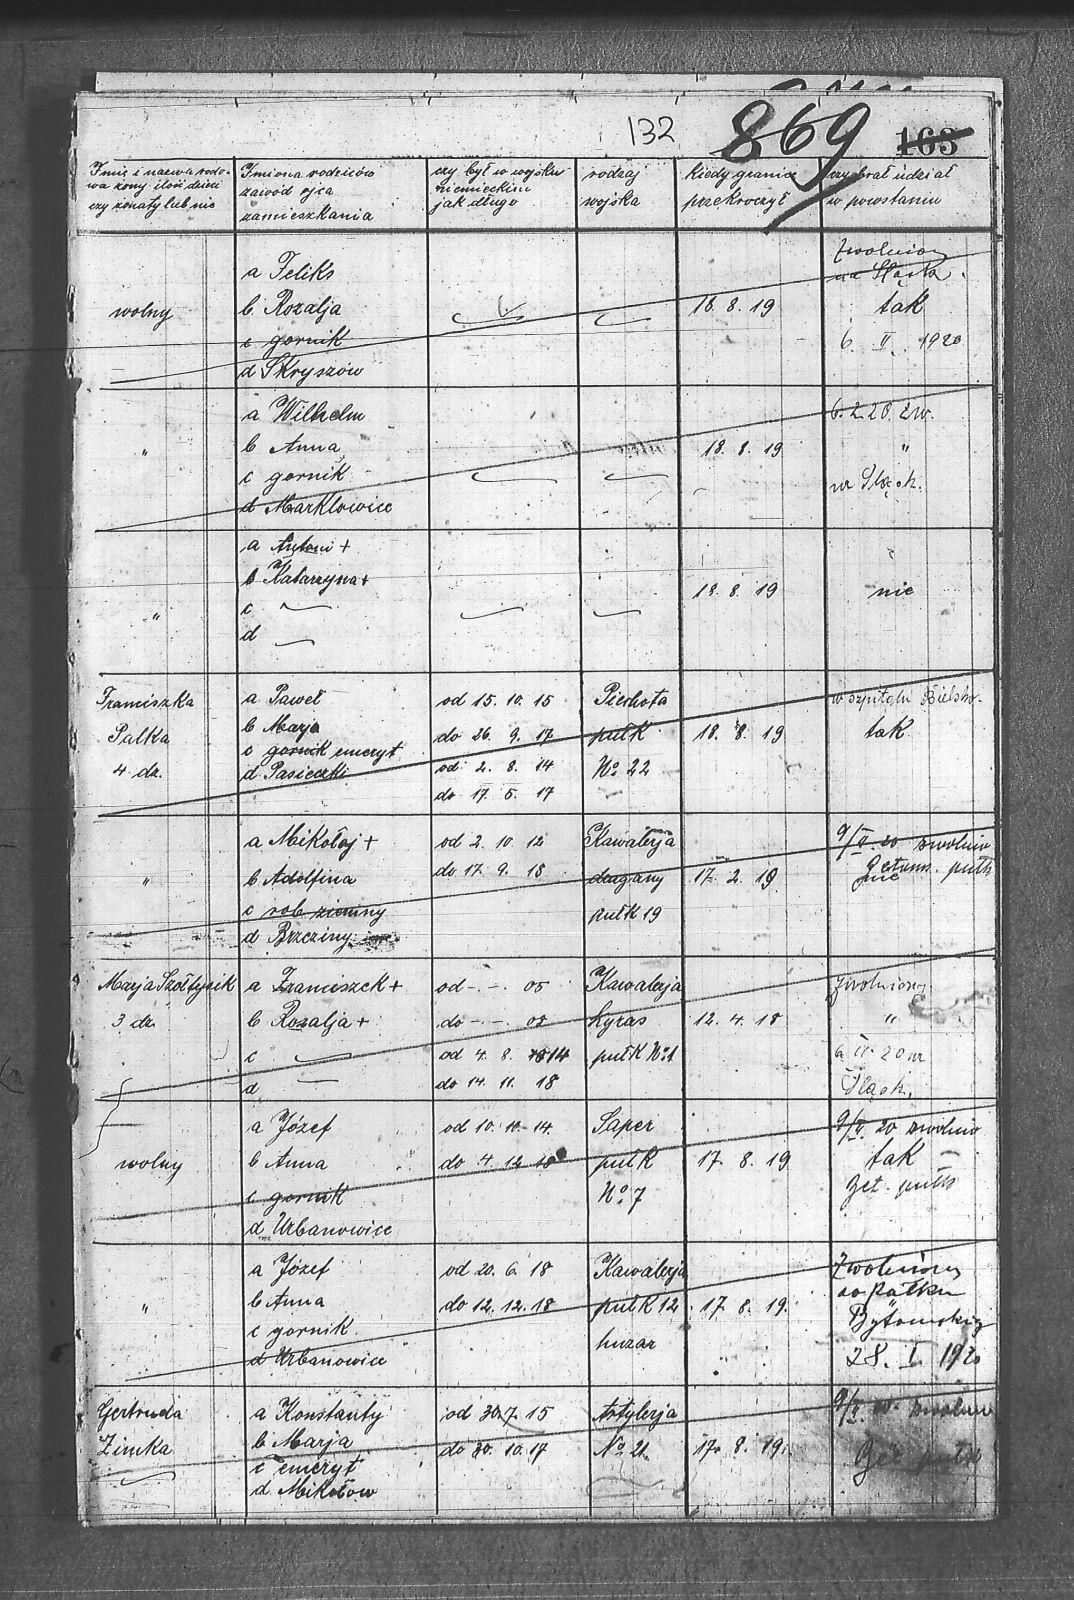 132 869 163
Imię i nazwa rodo-
wa żony ilość dzieci
czy żonaty lub nie
Imiona rodziców
zawód ojca
zamieszkania
czy był w wojsku
niemieckim
jak długo
rodzaj
wojska
kiedy granicę
przekroczył
czy brał udział
w powstaniu
wolny
a Feliks
b Rozalja
c gornik
d Skryszów
18. 8. 19
zwolniony
na Śląsk.
tak
6. II. 1920
"
a Wilhelm
b Anna
c gornik
d Marklowice
18. 8. 19
6. 2. 20 zw.
"
na Śląsk.
"
a Antoni +
b Katarzyna +
c
d
18. 8. 19
nie
Franciszka
Palka
4 dz.
a Paweł
b Marja
c gornik emeryt
d Pasieczki
od 15. 10. 15
do 26. 9. 17
od 2. 8. 14
do 17. 5. 17
Piechota
pułk
No 22
18. 8. 19
w szpitalu Bielsko.
tak
"
a Mikołaj +
b Adolfina
c rob. ziemny
d Brzeziny
od 2. 10. 12
do 17. 9. 18
Kawalerja
dragany
pułk 19
17. 2. 19
9/II. 20 zwolnio
nie
Marja Szołtysik
3 dz.
a Franciszek +
b Rozalja +
c
d
od -. -. 05
do -. -. 08
od 4. 8. 14
do 14. 11. 18
Kawalerja
kyras
pułk No 1
12. 4. 18
zwolniony
"
6 II. 20 na
Śląsk.
wolny
a Józef
b Anna
c gornik
d Urbanowice
od 10. 10. 14.
do 4. 12 18
Saper
pułk
No 7
17. 8. 19
9/II. 20 zwolnio
tak
"
a Józef
b Anna
c gornik.
d Urbanowice
od 20. 6. 18
do 12. 12. 18
Kawalerja
pułk 12
huzar
17. 8. 19.
Zwolniony
do Pułku
Bytomskieg
28. I. 1920
Gertruda
Zimka
a Konstanty
b Marja
c emeryt
d Mikołow
od 30. 7. 15
do 30. 10. 17
Artylerja
No 21.
17. 8. 19.
9/II. 20. zwolnio